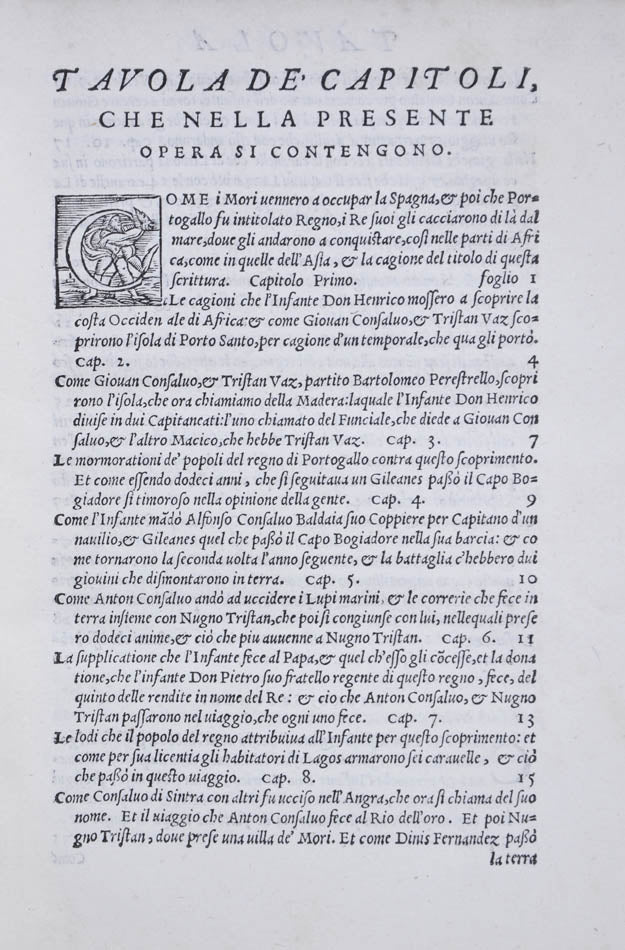 TAVOLA DE' CAPITOLI,
CHE NELLA PRESENTE
OPERA SI CONTENGONO.
COME i Mori uennero a occupar la Spagna, & poi che Por=
togallo fu intitolato Regno, i Re suoi gli cacciarono di là dal
mare, doue gli andarono a conquistare, così nelle parti di Afri
ca, come in quelle dell'Asia, & la cagione del titolo di questa
scrittura. Capitolo Primo. foglio 1
Le cagioni che l'Infante Don Henrico mossero a scoprire la
costa Occiden ale di Africa: & come Giouan Consaluo, & Tristan Vaz sco=
prirono l'isola di Porto Santo, per cagione d'un temporale, che qua gli portò.
Cap. 2. 4
Come Giouan Consaluo, & Tristan Vaz, partito Bartolomeo Perestrello, scopri
rono l'isola, che ora chiamiamo della Madera: laquale l'Infante Don Henrico
diuise in dui Capitaneati: l'uno chiamato del Funciale, che diede a Giouan Con
saluo, & l'altro Macico, che hebbe Tristan Vaz. Cap. 3. 7
Le mormorationi de' popoli del regno di Portogallo contra questo scoprimento.
Et come essendo dodeci anni, che si seguitaua un Gileanes passò il Capo Bo=
giadore si timoroso nella opinione della gente. Cap. 4. 9
Come l'Infante mādò Alfonso Consaluo Baldaia suo Coppiere per Capitano d'un
nauilio, & Gileanes quel che passò il Capo Bogiadore nella sua barcia: & co
me tornarono la seconda uolta l'anno seguente, & la battaglia c'hebbero dui
giouini che dismontarono in terra. Cap. 5. 10
Come Anton Consaluo andò ad uccidere i Lupi marini, & le correrie che fece in
terra insieme con Nugno Tristan, che poi si congiunse con lui, nellequali prese
ro dodeci anime, & ciò che piu auuenne a Nugno Tristan. Cap. 6. 11
La supplicatione che l'Infante fece al Papa, & quel ch'esso gli cōcesse, et la dona
tione, che l'infante Don Pietro suo fratello regente di questo regno, fece, del
quinto delle rendite in nome del Re: & cio che Anton Consaluo, & Nugno
Tristan passarono nel uiaggio, che ogni uno fece. Cap. 7. 13
Le lodi che il popolo del regno attribuiua all'Infante per questo scoprimento: et
come per sua licentia gli habitatori di Lagos armarono sei carauelle, & ciò
che passò in questo uiaggio. Cap. 8. 15
Come Consaluo di Sintra con altri fu ucciso nell'Angra, che ora si chiama del suo
nome. Et il uiaggio che Anton Consaluo fece al Rio dell'oro. Et poi Nu=
gno Tristan, doue prese una uilla de' Mori. Et come Dinis Fernandez passò
la terra